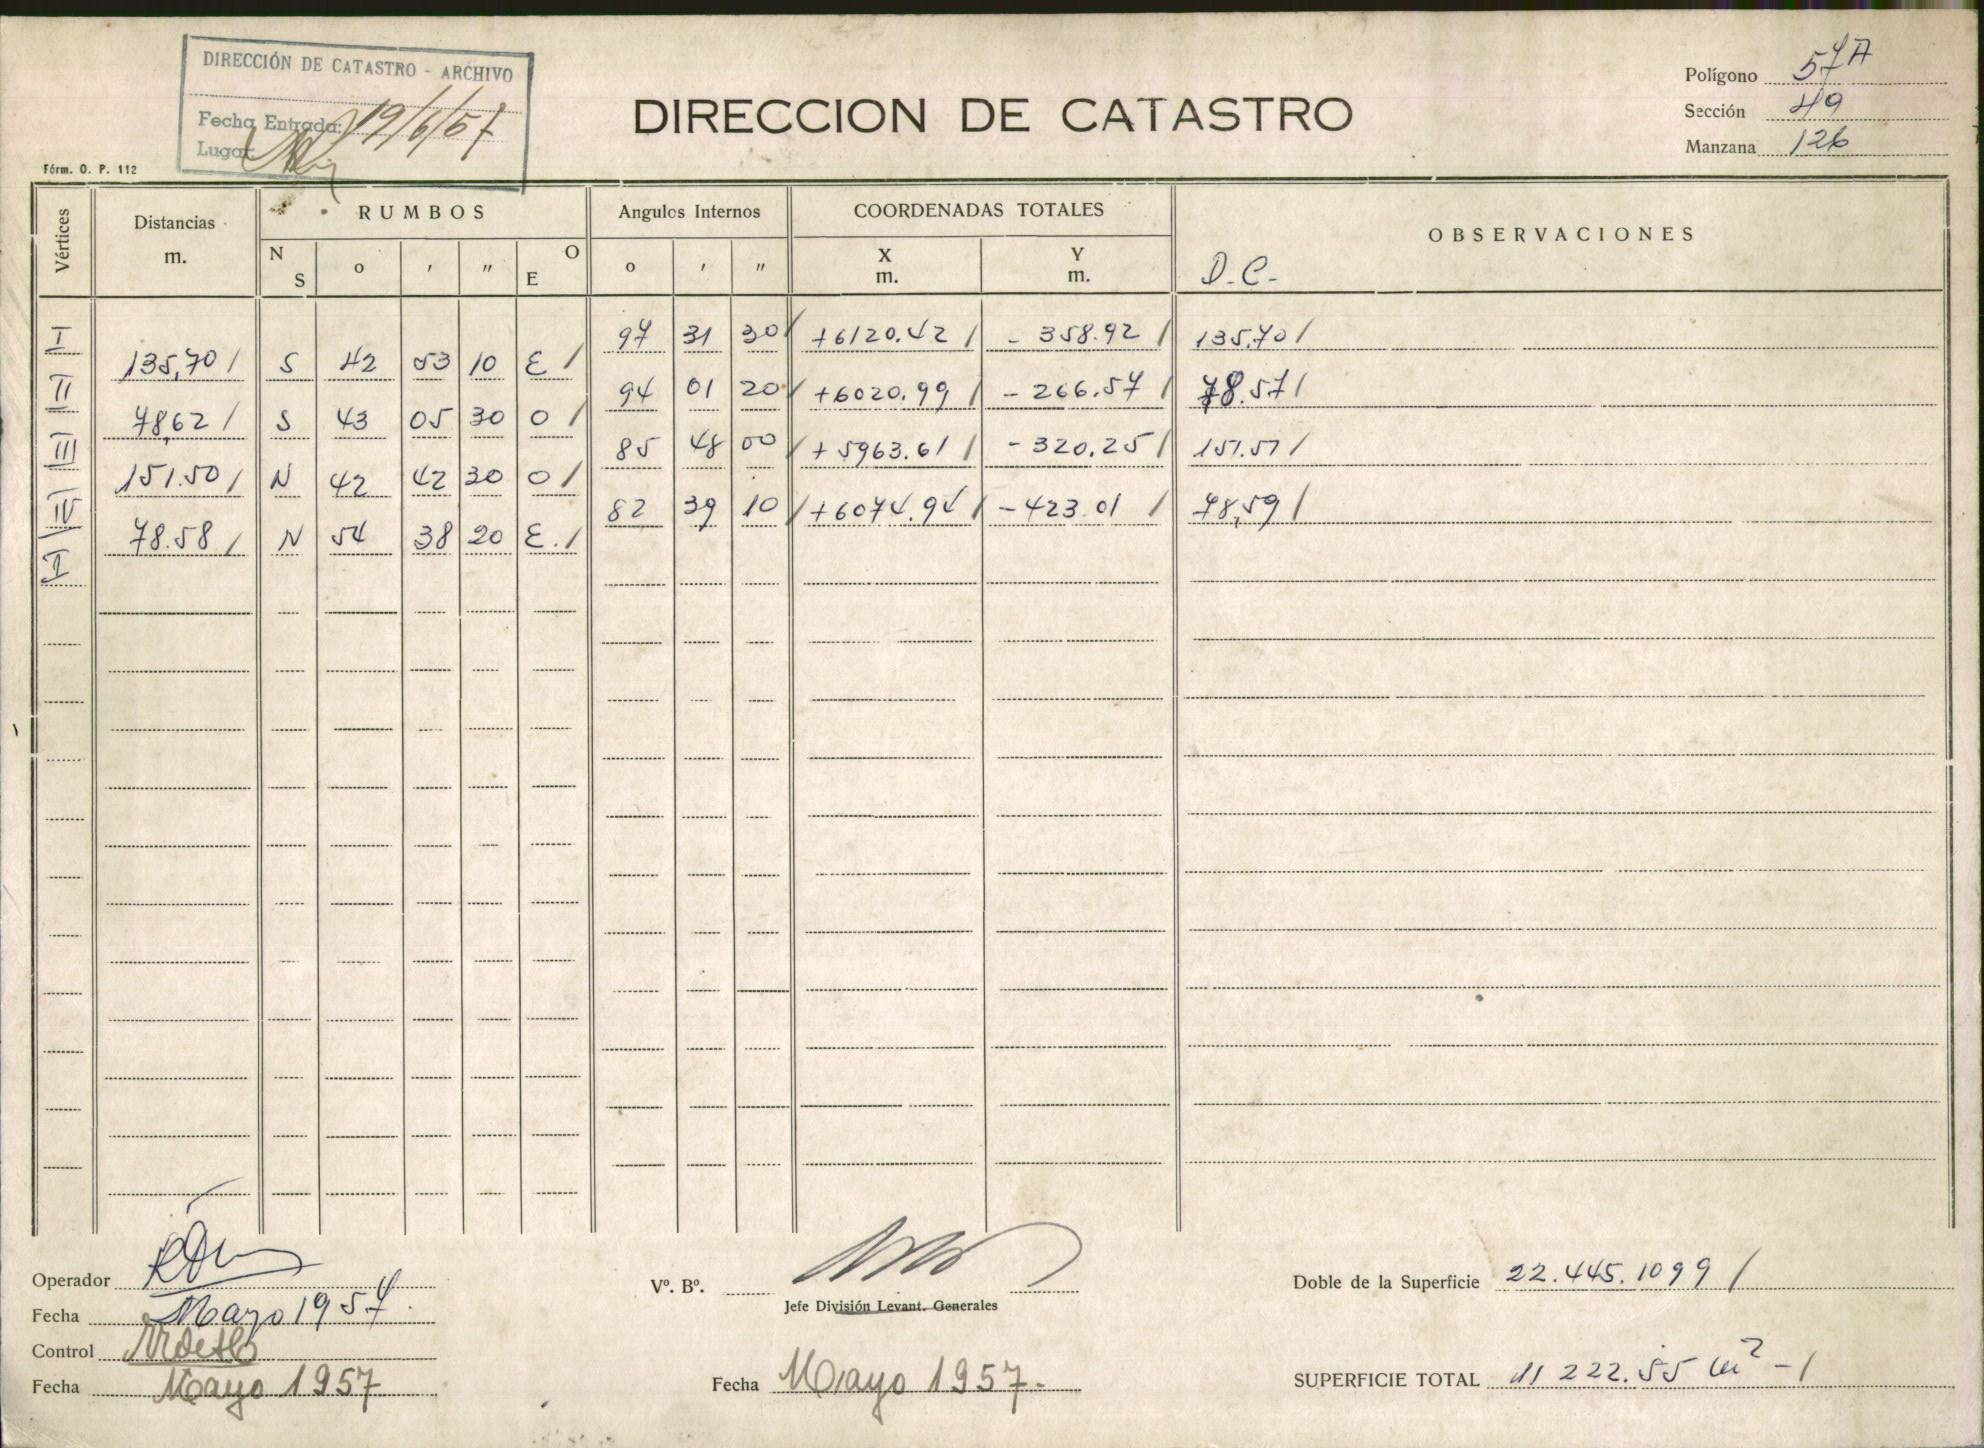 DIRECCIÓN DE CATASTRO - ARCHIVO
Fecha Entrada: 19/6/57
Lugar
DIRECCION DE CATASTRO
Polígono 57A
Sección 49
Manzana 126
Fórm. O. P. 112
Vértices Distancias m. RUMBOS Angulos Internos COORDENADAS TOTALES OBSERVACIONES
N S o ' " O E o ' " X m. Y m. D.C.-
I 97 31 30 / +6120.42 / - 358.92 / 135,70 /
135,70 / S 42 53 10 E /
II 94 01 20 / +6020.99 / - 266.57 / 78.57 /
78,62 / S 43 05 30 O /
III 85 48 00 / + 5963.61 / - 320.25 / 151.51 /
151.50 / N 42 42 30 O /
IV 82 39 10 / +6074.94 / - 423.01 / 78,59 /
78.58 / N 54 38 20 E. /
I
Operador
Fecha Mayo 1957.
Control
Fecha Mayo 1957
Vº. Bº.
Jefe División Levant. Generales
Fecha Mayo 1957.-
Doble de la Superficie 22.445.1099 /
SUPERFICIE TOTAL 11 222.55 m² - /